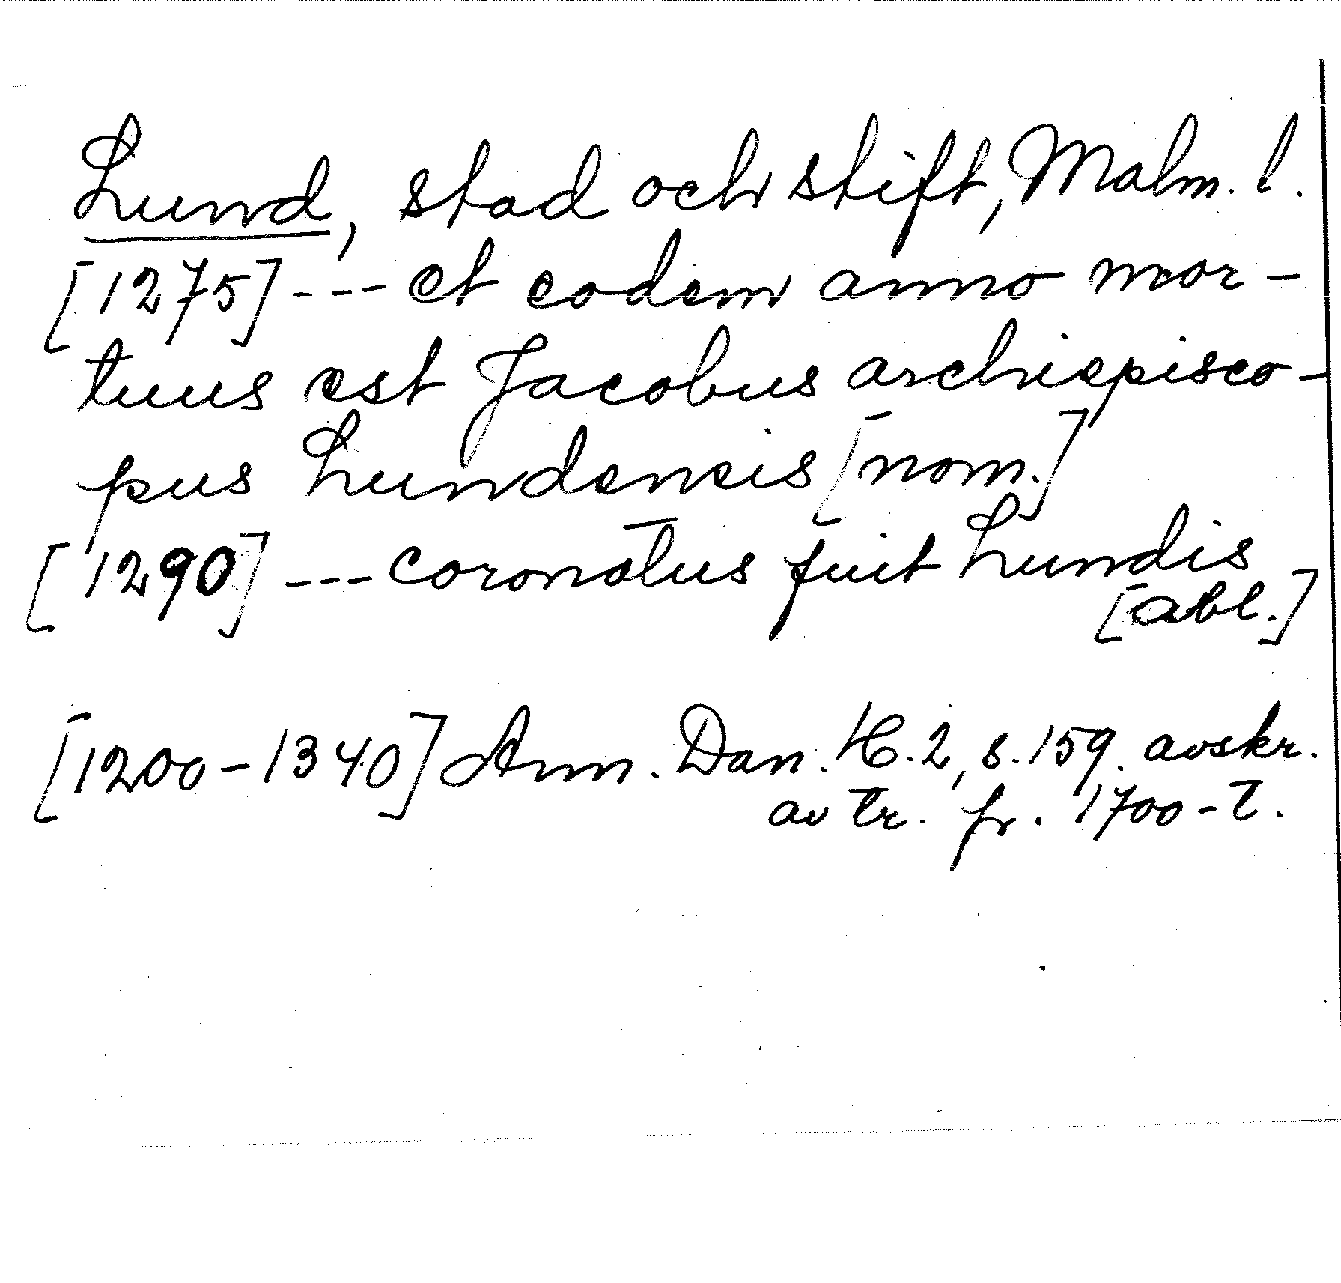 Lund, stad och stift, Malm. l.
[1275] --- et eodem anno mor-
tuus est Jacobus archiepisco-
pus Lundensis [nom.]
[1290] --- coronatus fuit Lundis
[abl.]
[1200-1340] Ann. Dan. H. 2, s. 159. avskr.
av tr. fr. 1700-t.